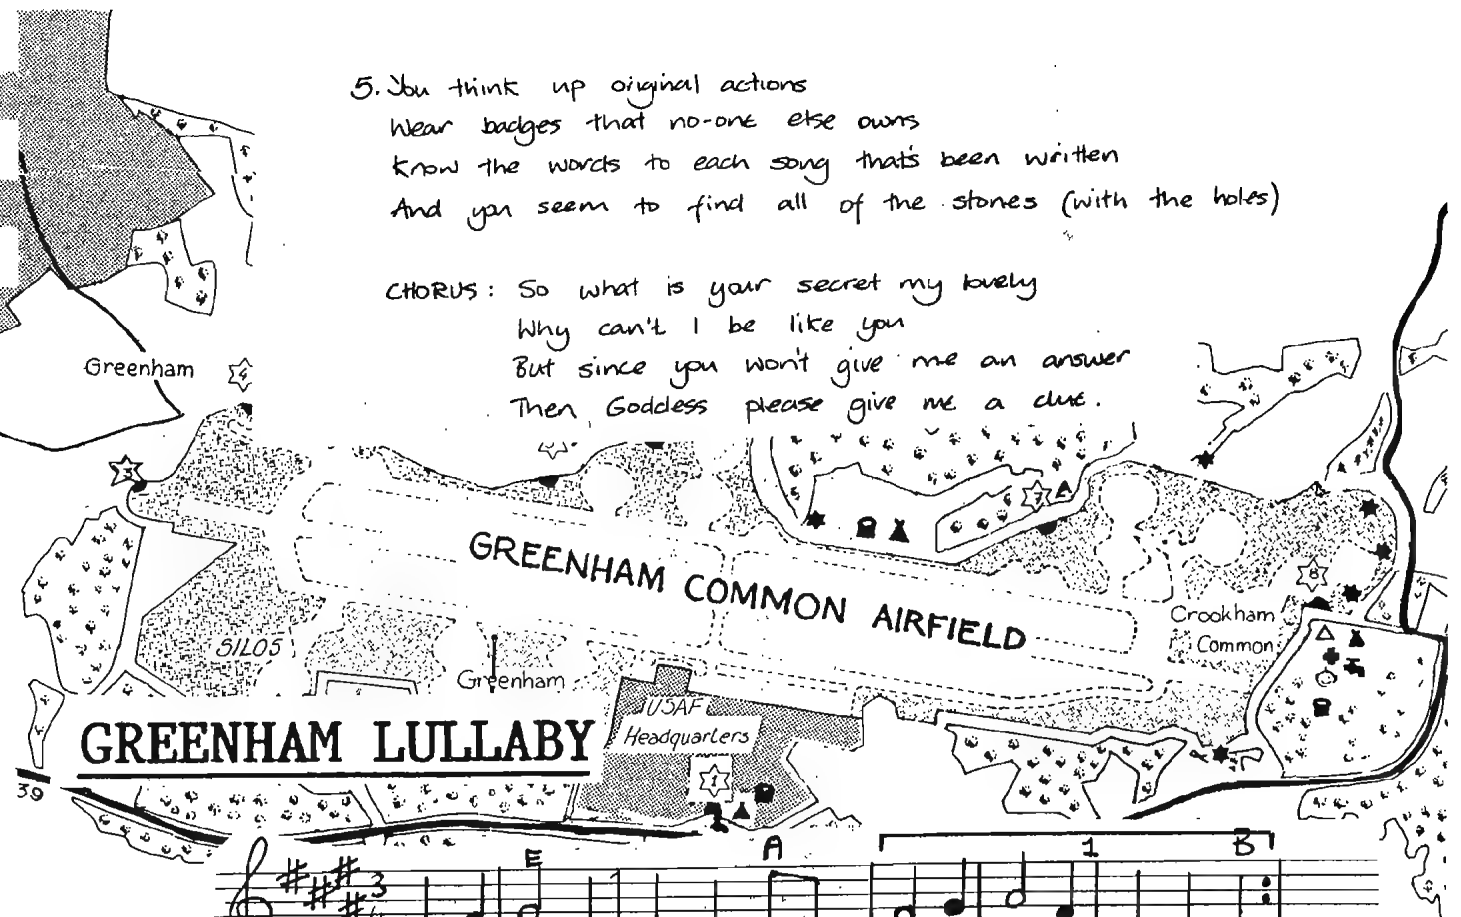 5. You think up original actions
Wear badges that no-one else owns
Know the words to each song that's been written
And you seem to find all of the stones (with the holes)
CHORUS: So what is your secret my lovely
Why can't I be like you
But since you won't give me an answer
Then Goddess please give me a clue.
Greenham
4
3
7
GREENHAM COMMON AIRFIELD
8
Crookham
Common
SILOS
Greenham
USAF
Headquarters
GREENHAM LULLABY
1
39
E
A
1
B
3